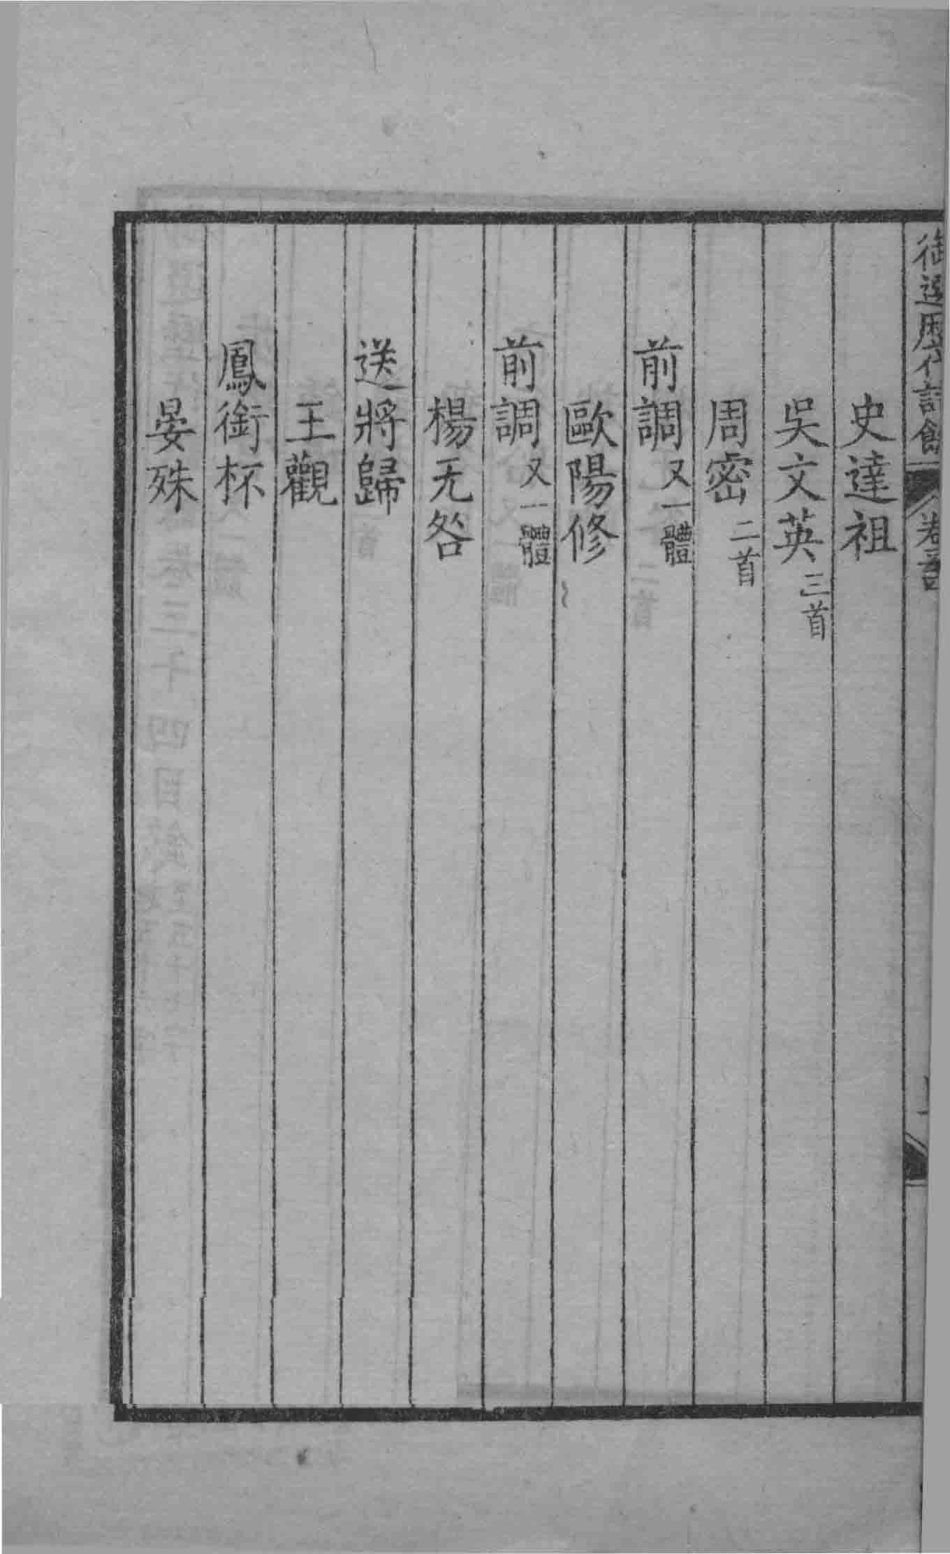 御選歴代詩餘 卷
史達祖
吳文英三首
周密二首
前調又一體
歐陽修
前調又一體
楊无咎
送將歸
王觀
鳳銜杯
晏殊